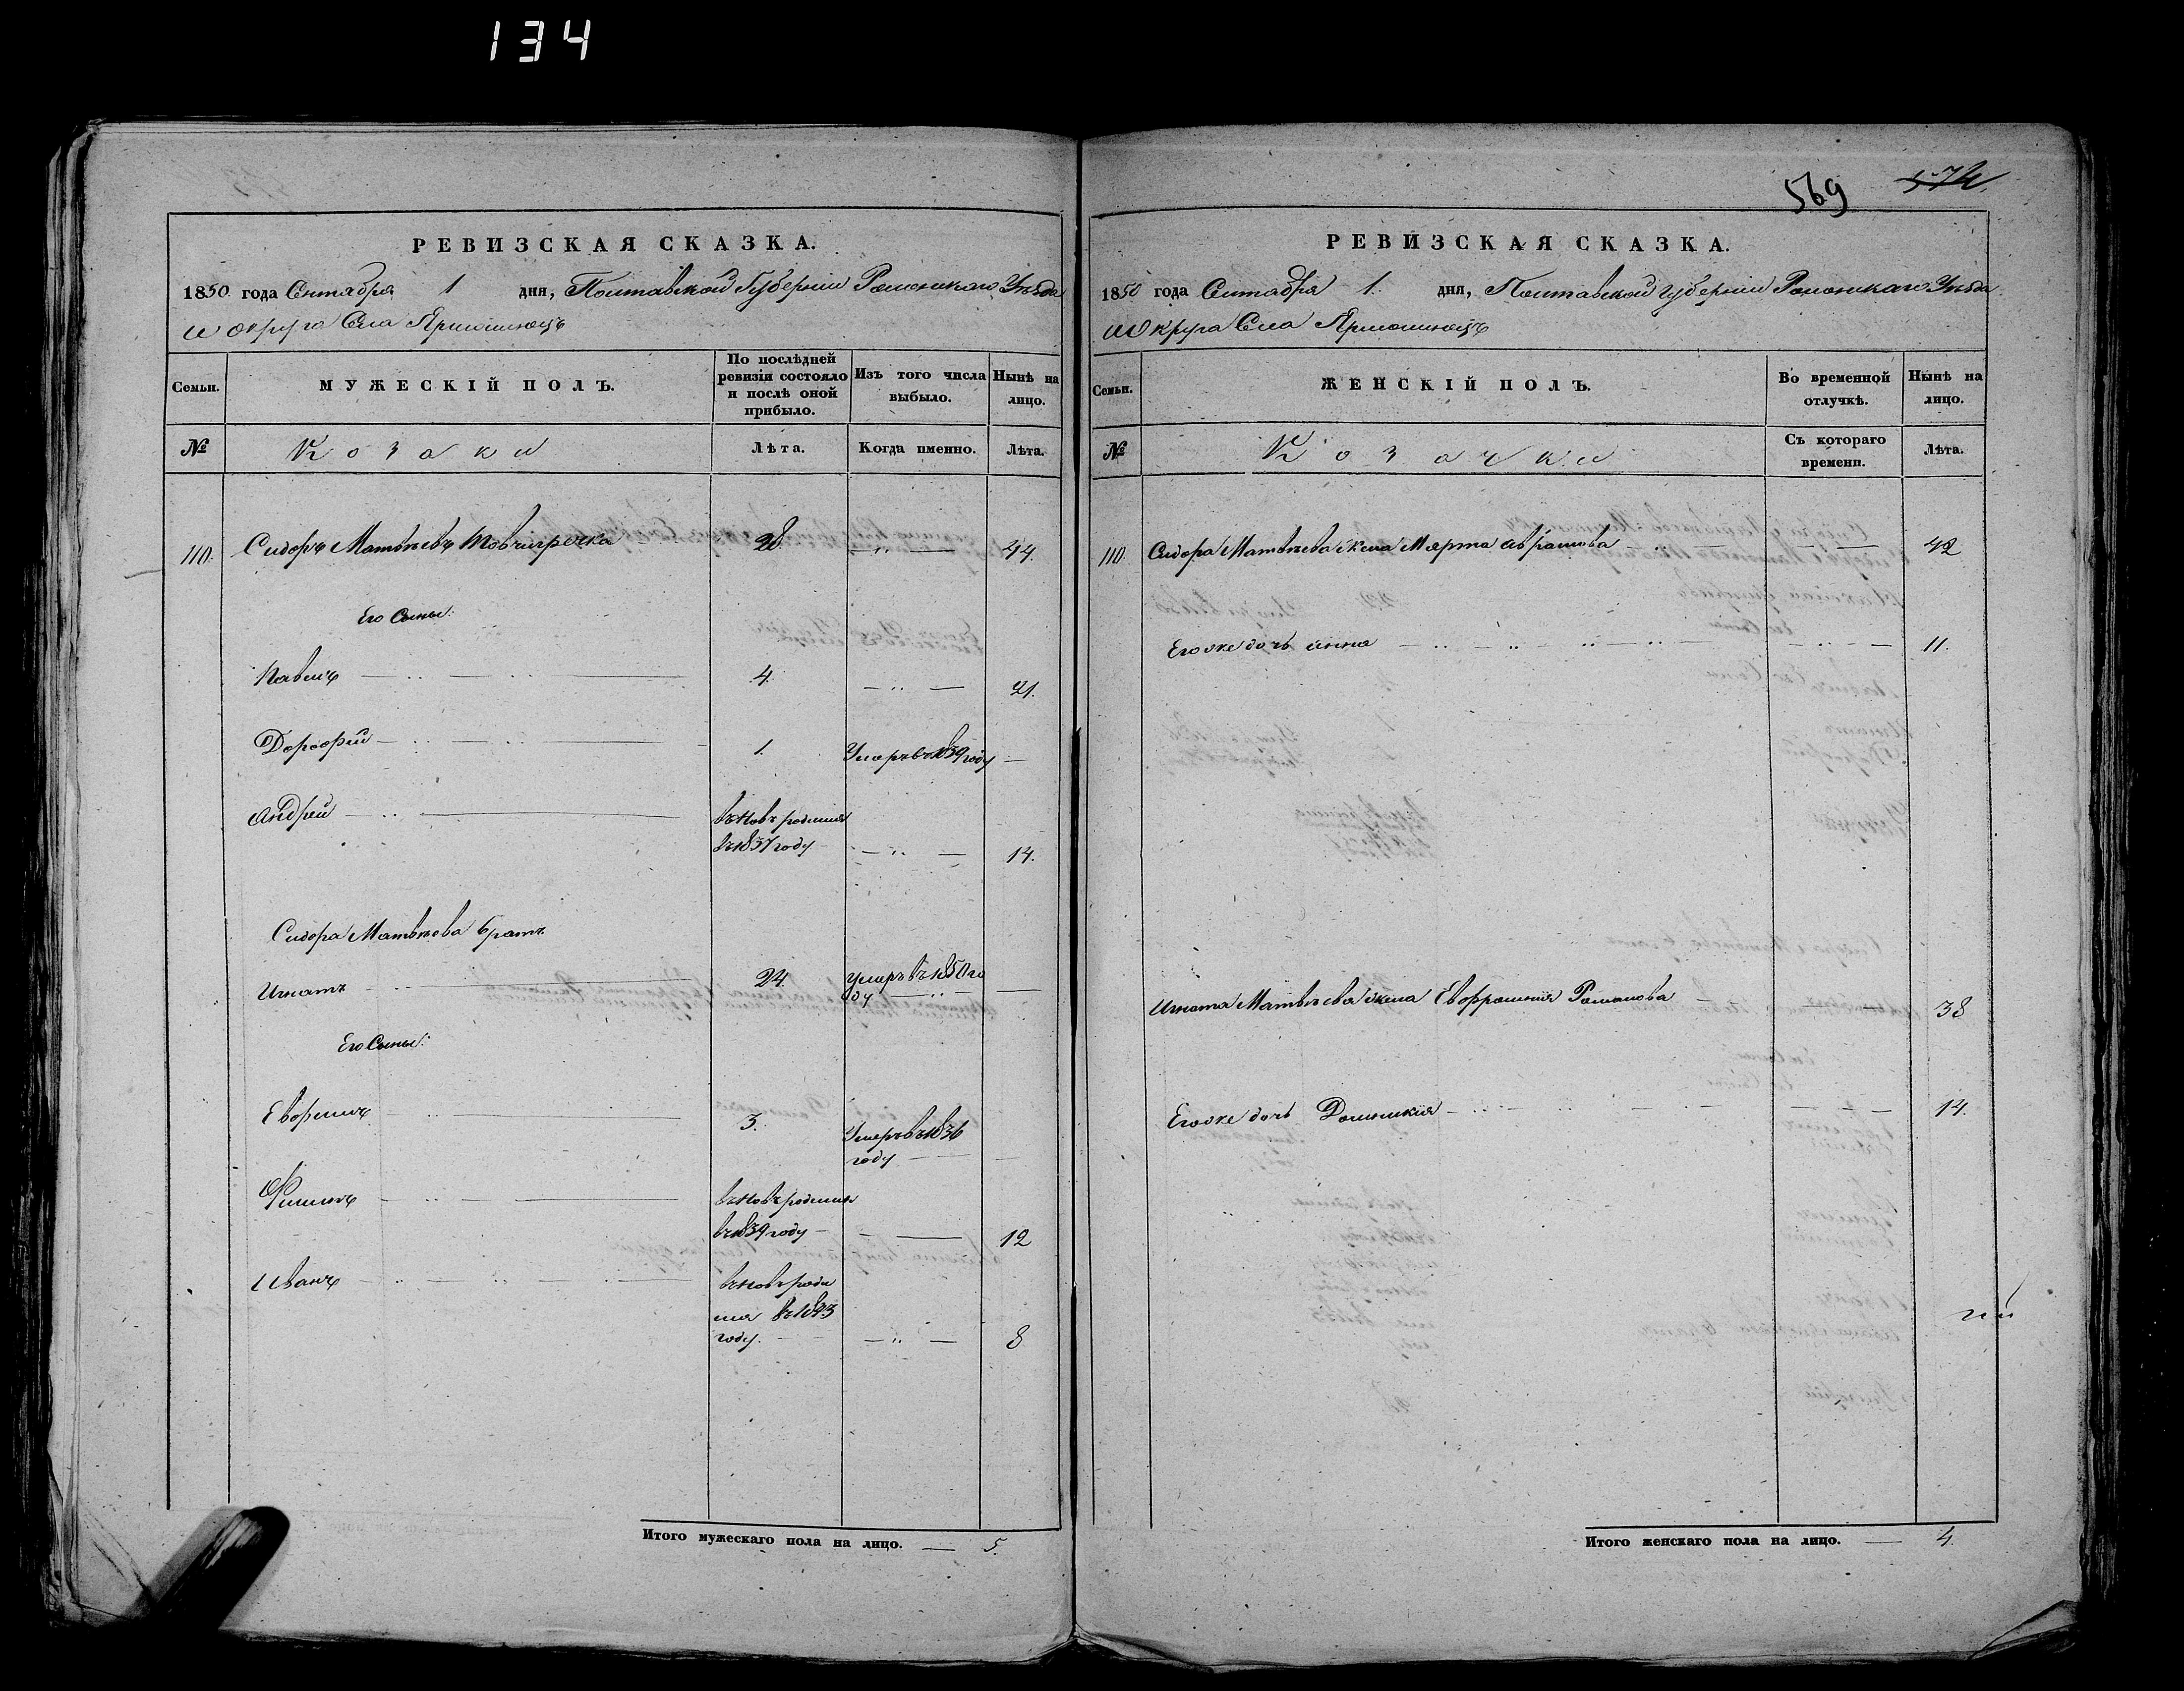 134
569 574
РЕВИЗСКАЯ СКАЗКА.
1850 года Сентября 1 дня, Полтавской Губерніи Роменскаго Уѣзда
и округа Села Ярмолинецъ
Семьи.
МУЖЕСКІЙ ПОЛЪ.
По послѣдней ревизіи состояло и послѣ оной прибыло.
Изъ того числа выбыло.
Нынѣ на лицо.
№ Козаки Лѣта. Когда именно. Лѣта.
110. Сидоръ Матвѣевъ Товчигречка 28 — „ — 44.
Его Сыны:
Павелъ 4. — „ — 21.
Дорофей 1. Умеръ въ 1839 году —
Андрей вновъ родился
въ 1837 году — „ — 14.
Сидора Матвѣева братъ
Игнатъ 24. умеръ въ 1850 го
ду —
Его Сыны:
Евфимъ 3. Умеръ въ 1836
году —
Филипъ вновъ родился
въ 1839 году — 12
Иванъ вновъ роди
лся въ 1843
году. — „ — 8
Итого мужескаго пола на лицо. — 5.
РЕВИЗСКАЯ СКАЗКА.
1850 года Сентября 1. дня, Полтавской Губерніи Роменскаго Уѣзда
и Округа Села Ярмолинецъ
Семьи.
ЖЕНСКІЙ ПОЛЪ.
Во временной отлучкѣ.
Нынѣ на лицо.
№ Козачки Съ котораго времени. Лѣта.
110. Сидора Матвѣева жена Марта Аврамова — 42
Его же дочь Анна — 11.
Игната Матвѣева жена Евфросинія Романова — 38
Его же дочь Домникія — 14.
Итого женскаго пола на лицо. — 4.